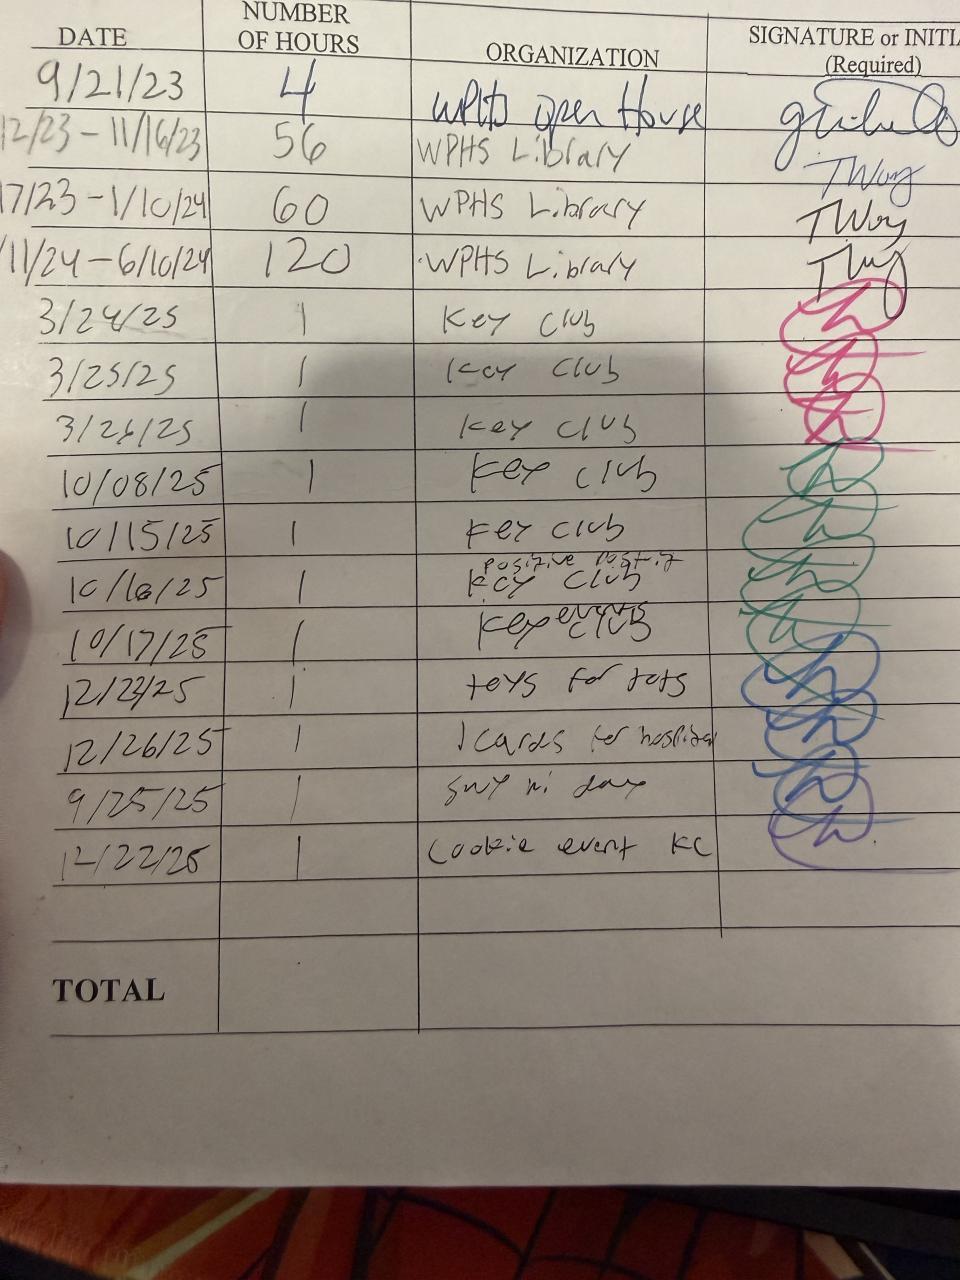 DATE NUMBER OF HOURS ORGANIZATION SIGNATURE or INITIA
(Required)
9/21/23 4 WPHS open House
12/23 - 11/16/23 56 WPHS Library TWoy
17/23 - 1/10/24 60 WPHS Library TWoy
/11/24 - 6/10/24 120 WPHS Library
3/24/25 1 Key Club
3/25/25 1 Key Club
3/26/25 1 Key Club
10/08/25 1 Key Club
10/15/25 1 Key Club
10/16/25 1 Key Club positive post it
10/17/25 1 Key Club events
12/23/25 1 toys for tots
12/26/25 1 cards for hospital
9/25/25 1 day
12/22/25 1 Cookie event KC
TOTAL